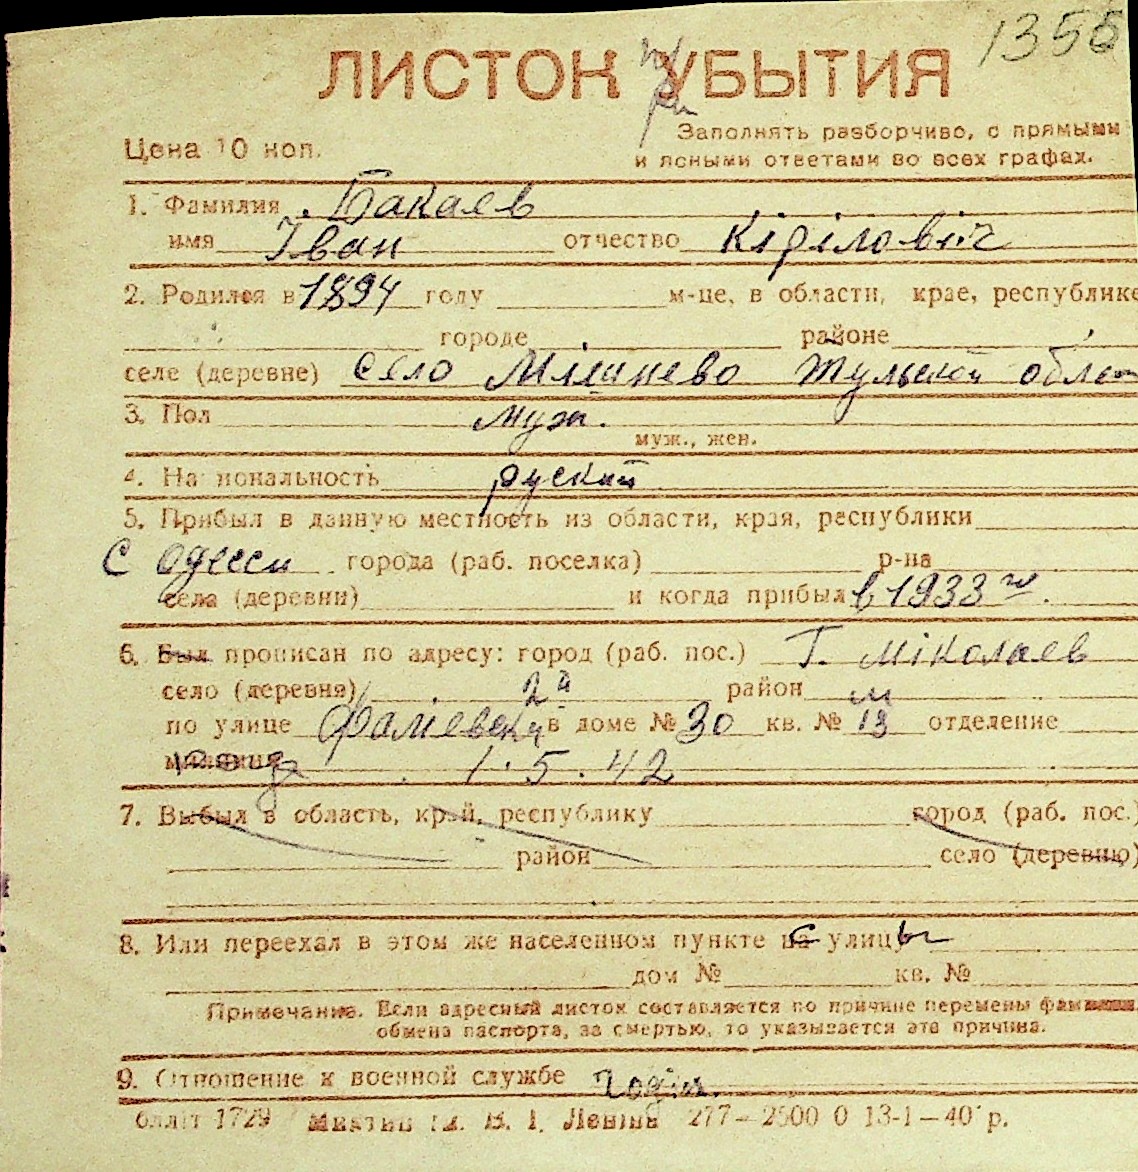 1355
ЛИСТОК УБЫТИЯ
при
Цена 10 коп.
Заполнять разборчиво, с прямыми
и ясными ответами во всех графах.
1. Фамилия Бакаев
имя Іван отчество Кіріловіч
2. Родился в 1894 году м-це, в области, крае, республике
городе районе
селе (деревне) село Мішнево Тульской облас
3. Пол муж.
муж., жен.
4. Национальность руский
5. Прибыл в данную местность из области, края, республики
С Одесси города (раб. поселка) р-на
села (деревни) и когда прибыл в 1933 г.
6. Был прописан по адресу: город (раб. пос.) Г. Міколаев
село (деревня) район
по улице 2я Фаліевская в доме № 30 кв. № 13 отделение
милиции 1.5.42
7. Выбыл в область, край, республику город (раб. пос.)
район село (деревню)
8. Или переехал в этом же населенном пункте с улицы
дом № кв. №
Примечание. Если адресный листок составляется по причине перемены фамилии
обмена паспорта, за смертью, то указывается эта причина.
9. Отношение к военной службе
блліт 1729 ім. В. І. Леніна 277—2500 0 13-1—40 р.